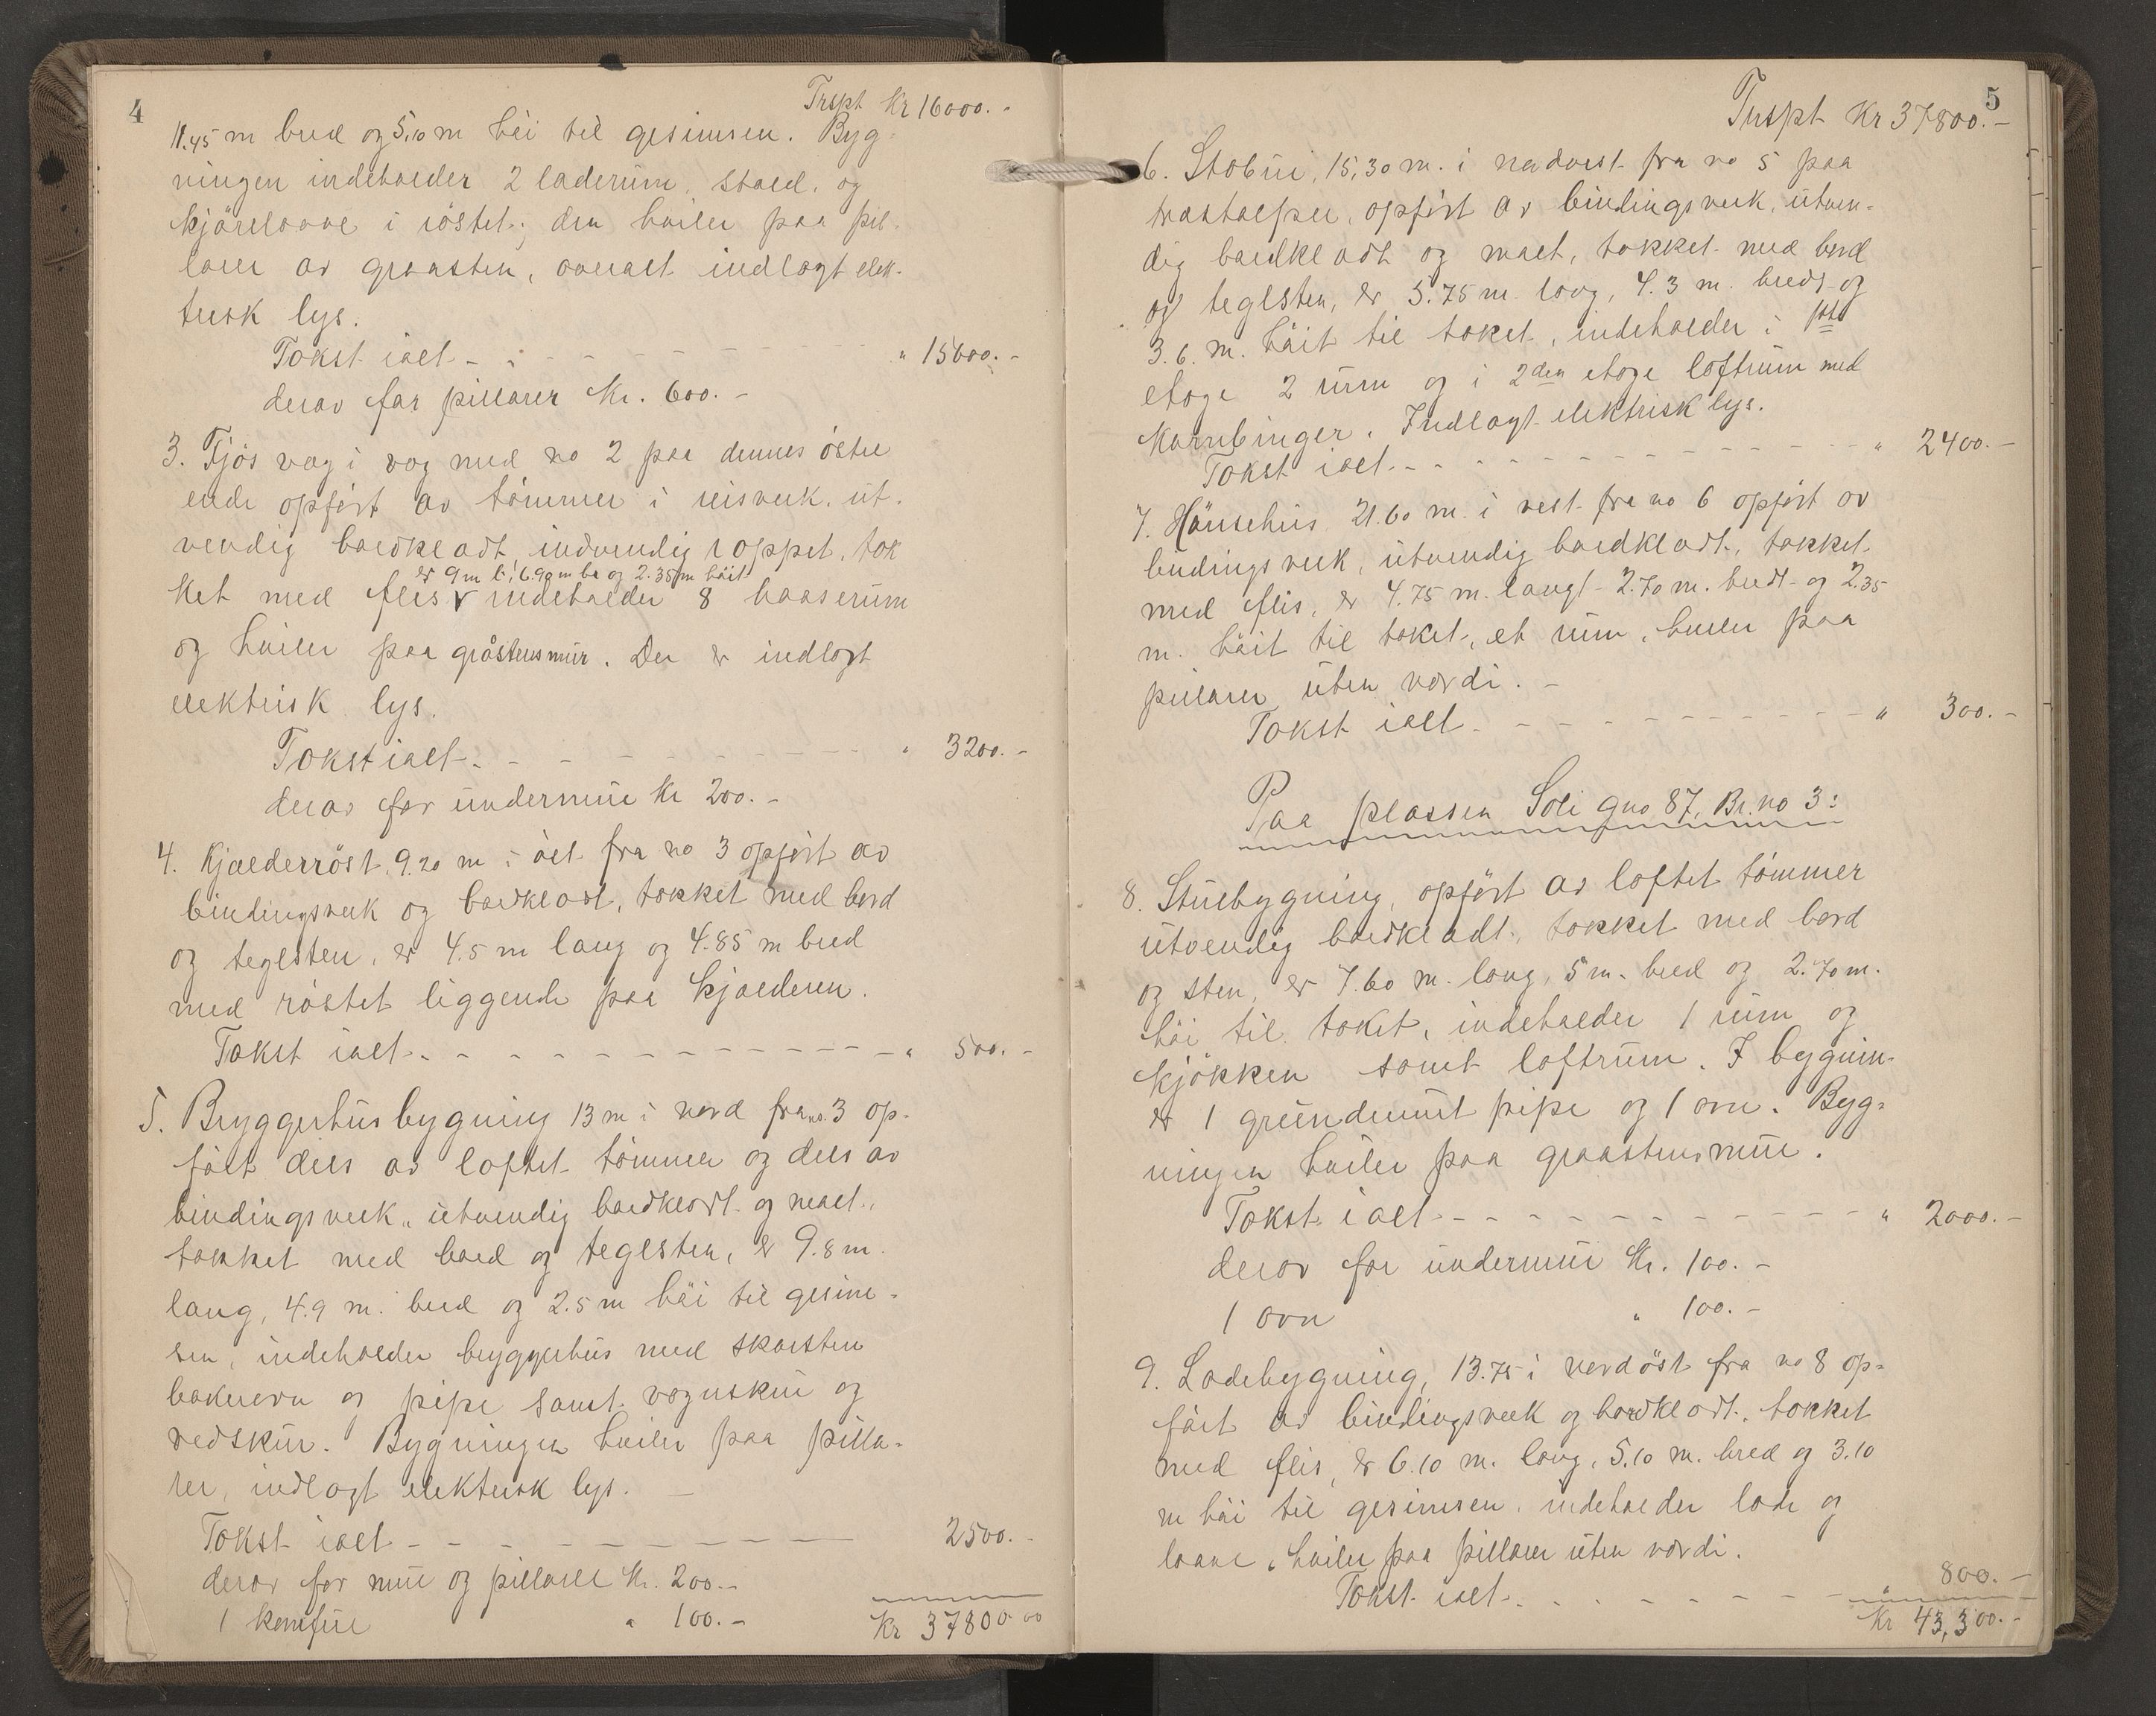 4
Trspt Kr 16000.-
11.45 m bred og 5.10 m høi til gesimsen. Byg-
ningen indeholder 2 laderum, stald, og
kjørelaave i røstet; den hviler paa pil-
larer av graasten, overalt indlagt elek-
trisk lys.
Takst ialt - - - - - " 15600.-
derav for pillarer Kr. 600.-
3. Fjøs væg i væg med no 2 paa dennes østre
ende opført av tømmer i reisverk, ut-
vendig bordklædt, indvendig rappet, tæk
er 9 m l., 6.90 m br og 2.35 m høit
ket med flis V indeholder 8 baaserum
og hviler paa gråstensmur. Der er indlagt
elektrisk lys.
Takst ialt - - - - - " 3200.-
derav for undermur Kr 200.-
4. Kjælderrøst, 9.20 m i øst fra no 3 opført av
bindingsverk og bordklædt, tækket med bord
og teglsten, er 4.5 m lang og 4.85 m bred
med røstet liggende paa kjælderen.
Takst ialt - - - - - " 500.-
5. Bryggerhusbygning 13 m i nord fra no. 3 op-
ført dels av laftet tømmer og dels av
bindingsverk, utvendig bordklædt og malt,
tækket med bord og teglsten, er 9.8 m.
lang, 4.9 m. bred og 2.5 m høi til gesim-
sen, indeholder bryggerhus med skorsten
bakerovn og pipe samt vognskur og
vedskur. Bygningen hviler paa pilla-
rer, indlagt elektrisk lys. -
Takst ialt - - - - - 2500.-
derav for mur og pillarer Kr. 200.-
1 komfur " 100.-
Kr 37800.00
5
Trspt Kr 37800.-
6. Stabur, 15,30 m. i nordvest fra no 5 paa
træstolper, opført av bindingsverk, utven-
dig bordklædt og malt, tækket med bord
og teglsten, er 5.75 m lang, 4.3 m. bredt og
3.6. m. høit til taket, indeholder i 1ste
etage 2 rum og i 2den etage loftrum med
kornbinger. Indlagt elektrisk lys.
Takst ialt - - - - - " 2400.-
7. Hønsehus 21.60 m. i vest fra no 6 opført av
bindingsverk, utvendig bordklædt, tækket
med flis, er 4.75 m. langt 2.70 m. bredt og 2.35
m. høit til taket, et rum, hviler paa
pillarer uten værdi. -
Takst ialt - - - - - " 300.-
Paa plassen Soli gno 87, Br. no 3:
8. Stuebygning, opført av laftet tømmer
utvendig bordklædt, tækket med bord
og sten, er 7.60 m. lang, 5 m. bred og 2.70 m.
høi til taket, indeholder 1 rum og
kjøkken samt loftrum. I bygnin-
er 1 grundmurt pipe og 1 ovn. Byg-
ningen hviler paa graastensmur.
Takst ialt - - - - - " 2000.-
derav for undermur Kr. 100.-
1 ovn " 100.-
9. Ladebygning, 13.75 i nordøst fra no 8 op-
ført av bindingsverk og bordklædt, tækket
med flis, er 6.10 m. lang, 5.10 m. bred og 3.10
m høi til gesimsen, indeholder lade og
laave, hviler paa pillarer uten værdi.
Takst ialt - - - - - " 800.-
Kr 43,300.-